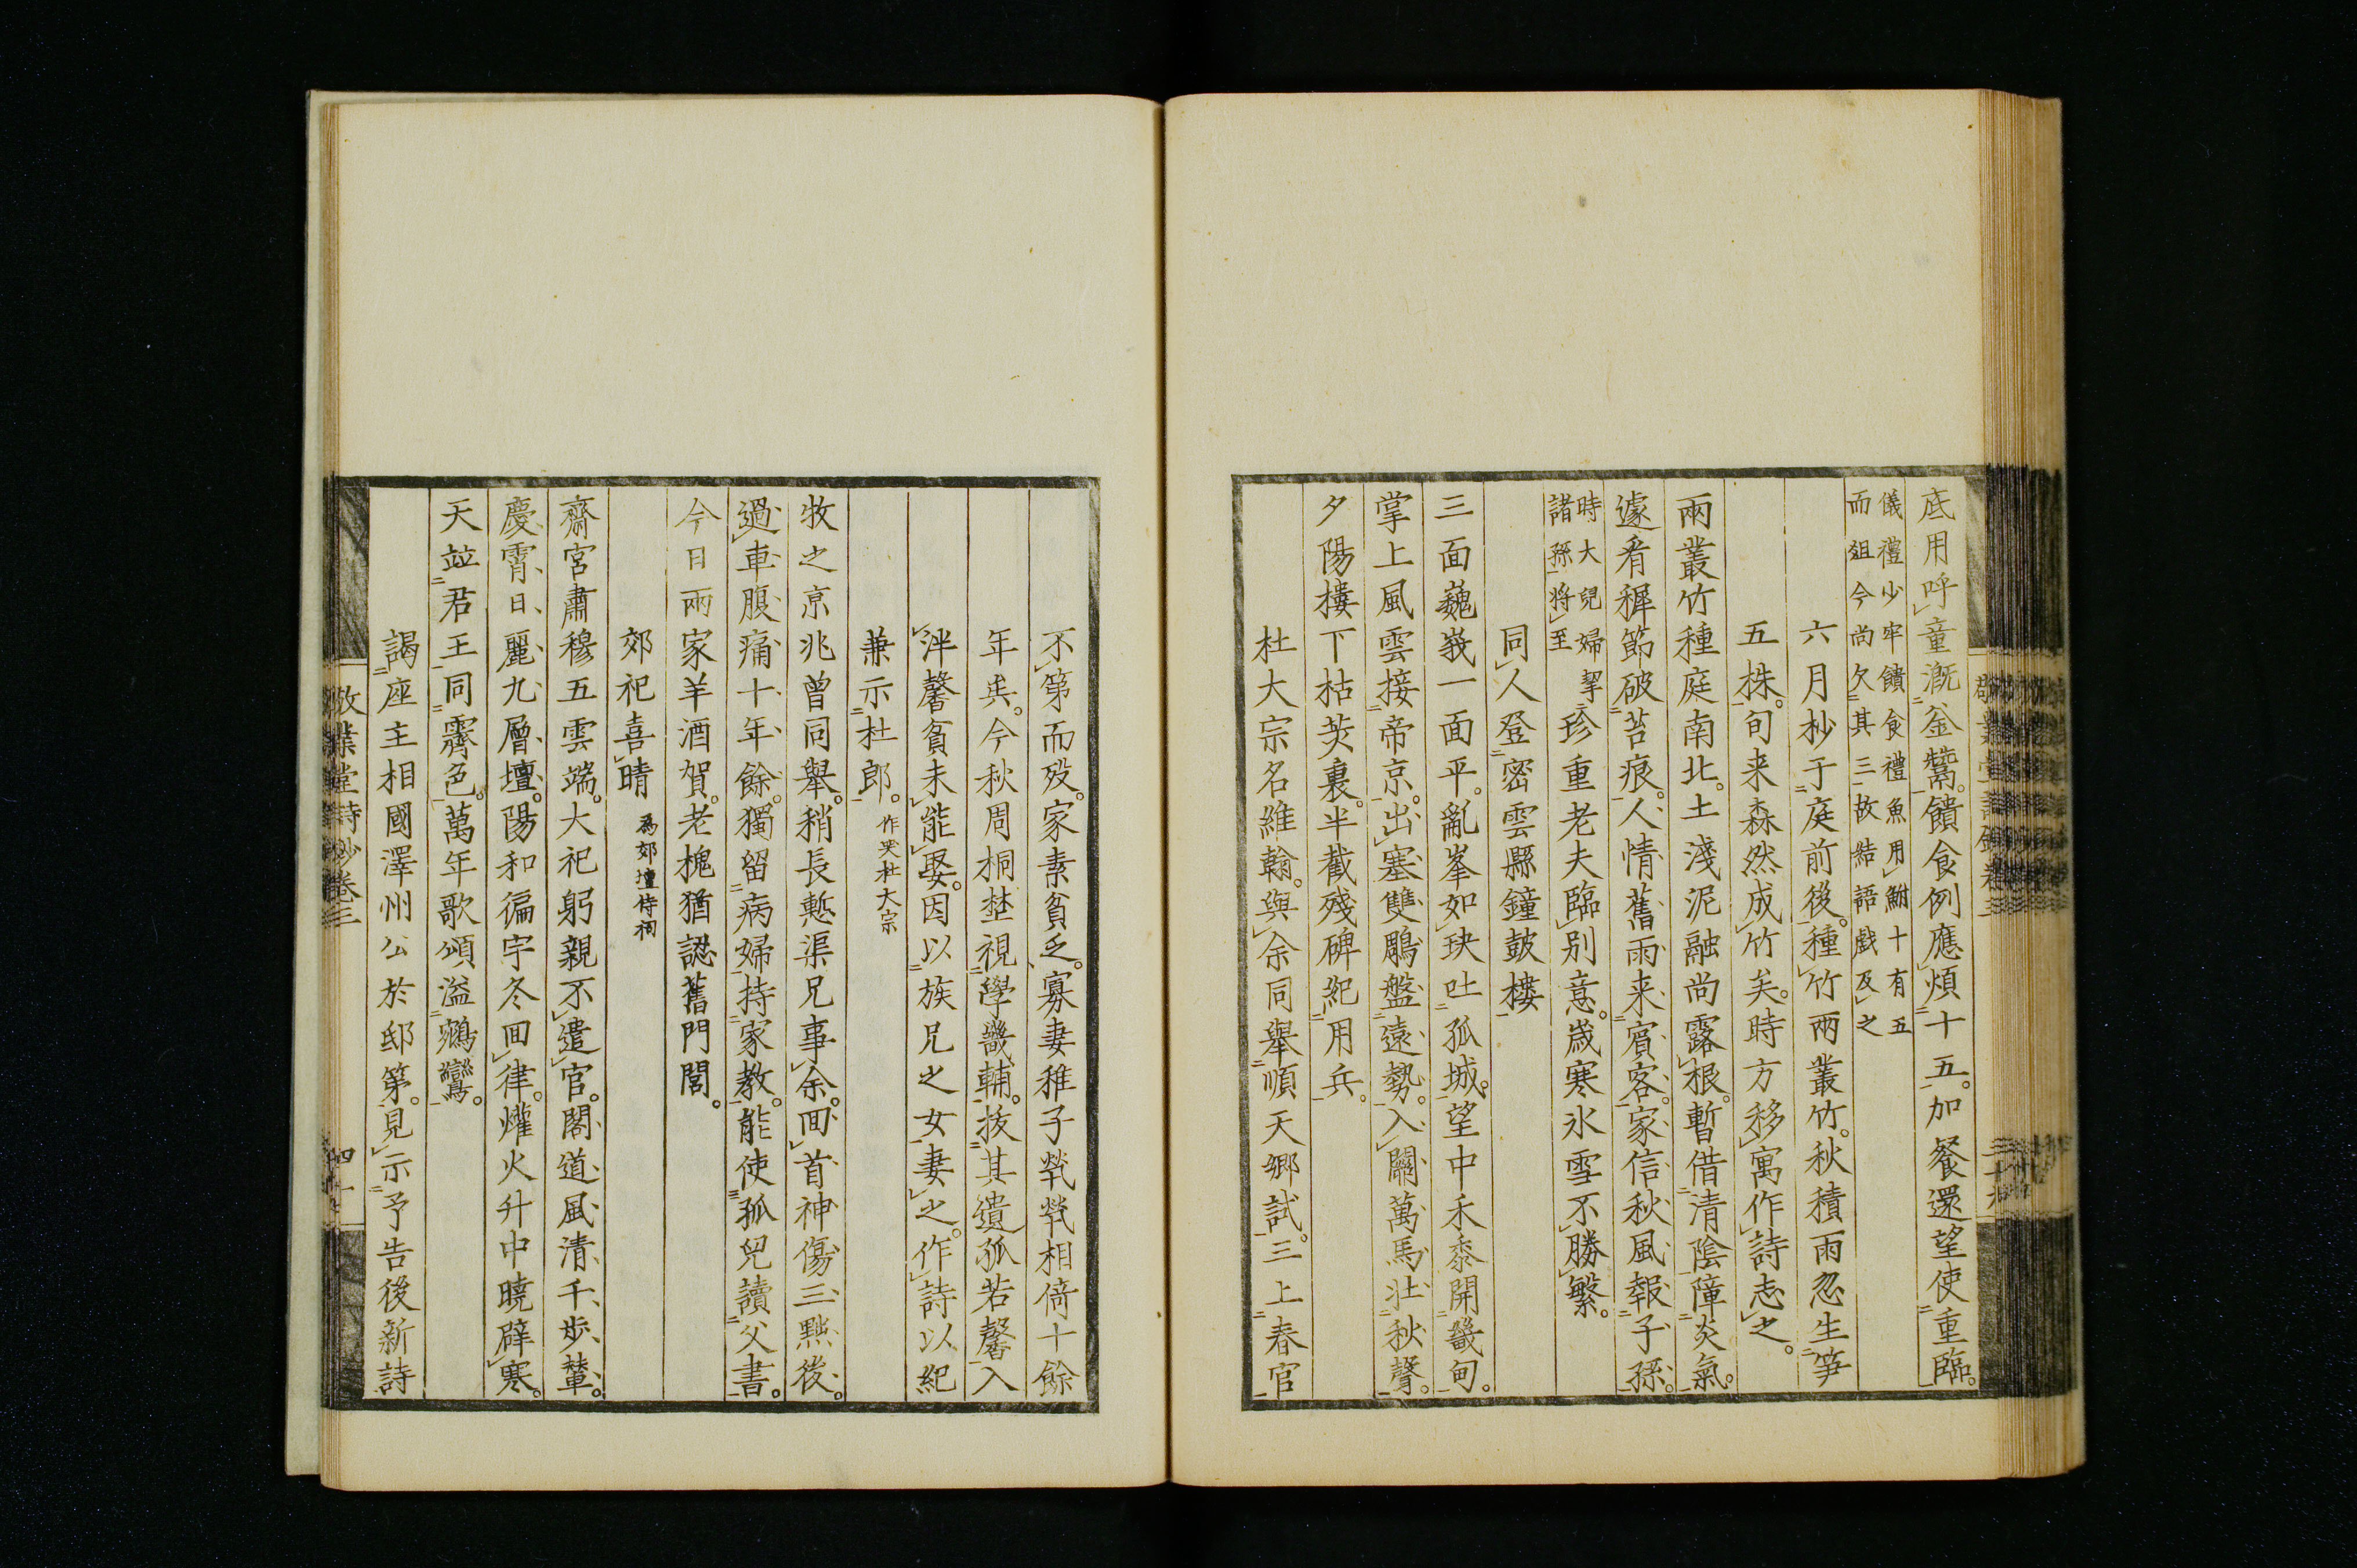 底用呼童漑釡鬵。饋食例應煩十五。加餐還望使重臨。
儀禮少牢饋食禮魚用鮒十有五
而俎今尚欠其三故結語戲及之
六月杪于庭前後種竹兩叢竹。秋積雨忽生笋
五株。旬来森然成竹矣。時方移寓作詩志之。
兩叢竹種庭南北。土淺泥融尚露根。暫借清陰障炎氣。
遽看穉節破苔痕。人情舊雨来賓客。家信秋風報子孫。
時大兒婦挈
諸孫將至
珍重老夫臨別意。歲寒氷雪不勝繁。
同人登密雲縣鐘鼓樓
三面巍峩一面平。亂峯如玦吐孤城。望中禾黍開畿甸。
掌上風雲接帝京。出塞雙鵰盤遠勢。入關萬馬壮秋聲。
夕陽樓下枯荚裏。半截殘碑紀用兵。
杜大宗名維翰。與余同舉順天鄉試。三上春官
不第而歿。家素貧乏。寡妻稚子煢煢相倚十餘
年矣。今秋周桐埜視學畿輔。拔其遺孤若馨入
泮馨貧未能娶。因以族兄之女妻之。作詩以紀
兼示杜郎。
作哭杜大宗
牧之京兆曾同舉。稍長慙渠兄事余。回首神傷三㸃後。
過車腹痛十年餘。獨留病婦持家教。能使孤兒讀父書。
今日兩家羊酒賀。老槐猶認舊門閭。
郊祀喜晴
為郊壇侍祠
齋宮肅穆五雲端。大祀躬親不遣官。閣道風清千步輦。
慶霄日麗九層壇。陽和徧宇冬回律。爟火升中曉辟寒。
天竝君王同霽色。萬年歌頌溢鵷鸞。
謁座主相國澤州公於邸第。見示予告後新詩
敬業堂詩鈔卷三
四十一